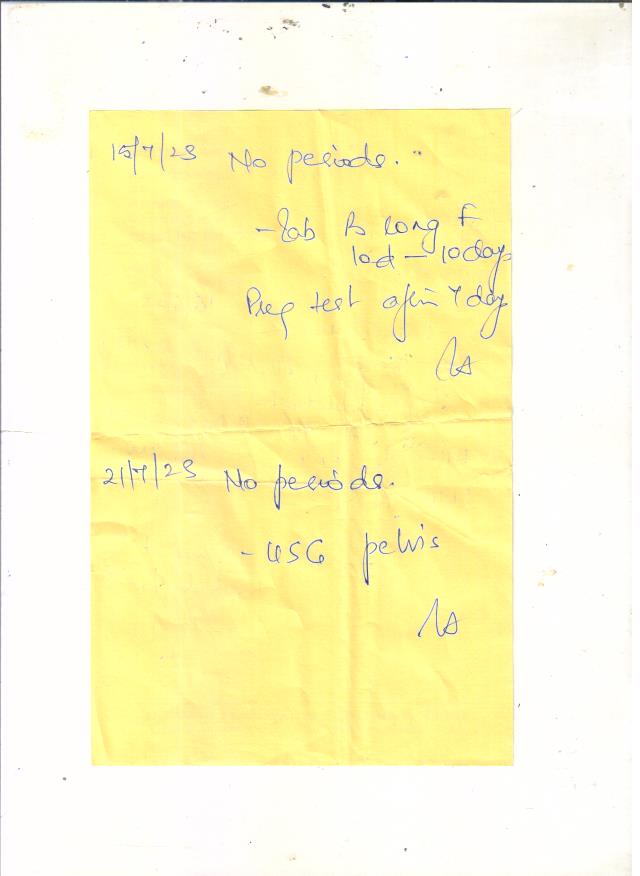 15/7/23 No periods.
- Tab B long F
10d - 10days
Preg test after 7 day
21/7/23 No periods.
- USG pelvis